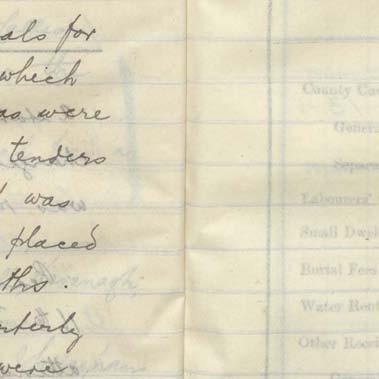 als for
which
as were
tenders
was
placed
ths.
rterly
were
County
Genera
Separa
Labourers'
Small Dwel
Burial Fees
Water Rent
Other Recei